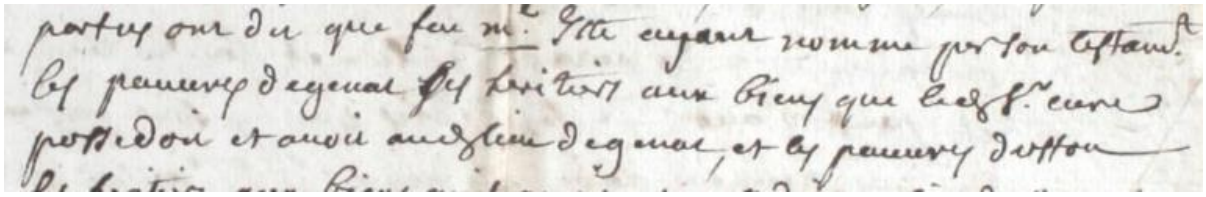 parties ont dit que feu m.e Itte ayant nomme par son testam.t
les pauvres degenat ses heritiers aux biens que led s.r cure
possedoit et avoit aud lieu degenat, et les pauvres dusson
les heritiers aux biens